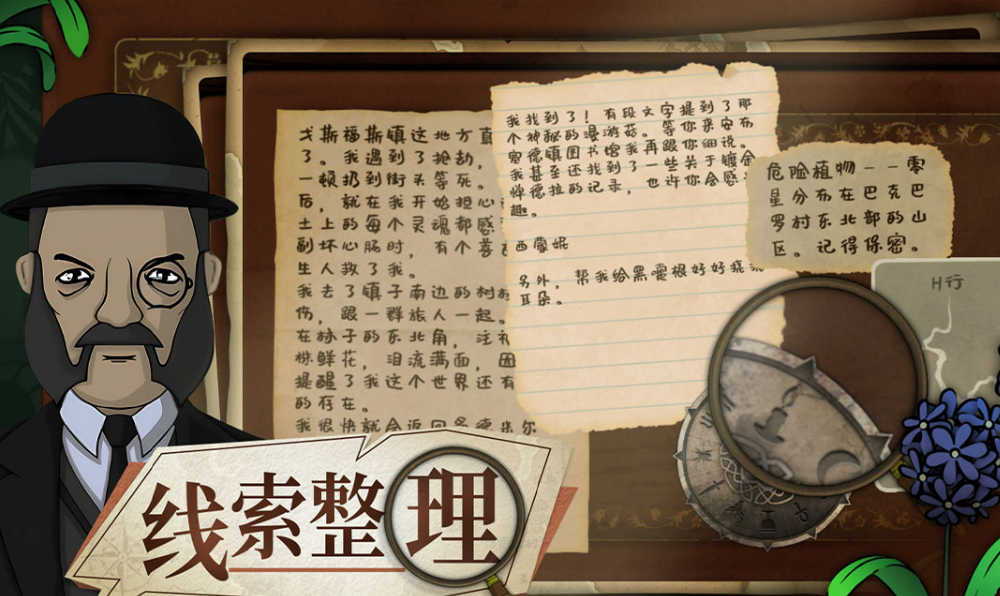 戈斯福斯镇这地方真
了。我遇到了抢劫,
一顿扔到街头等死。
后,就在我开始担心
土上的每个灵魂都感
副坏心肠时,有个善
生人救了我。
我去了镇子南边的树
伤,跟一群旅人一起。
在林子的东北角,注
鲜花,泪流满面,因
提醒了我这个世界还有
的存在。
我很快就会返回
我找到了!有段文字提到了那
个神秘的漫游菇。等你来安布
寇德镇图书馆我再跟你细说。
我甚至还找到了一些关于镀金
悼德拉的记录,也许你会感
趣。
西蒙妮
另外,帮我给黑噔根好好挠挠
耳朵。
危险植物——零
星分布在巴克巴
罗村东北部的山
区。记得保密。
H行
线索整理